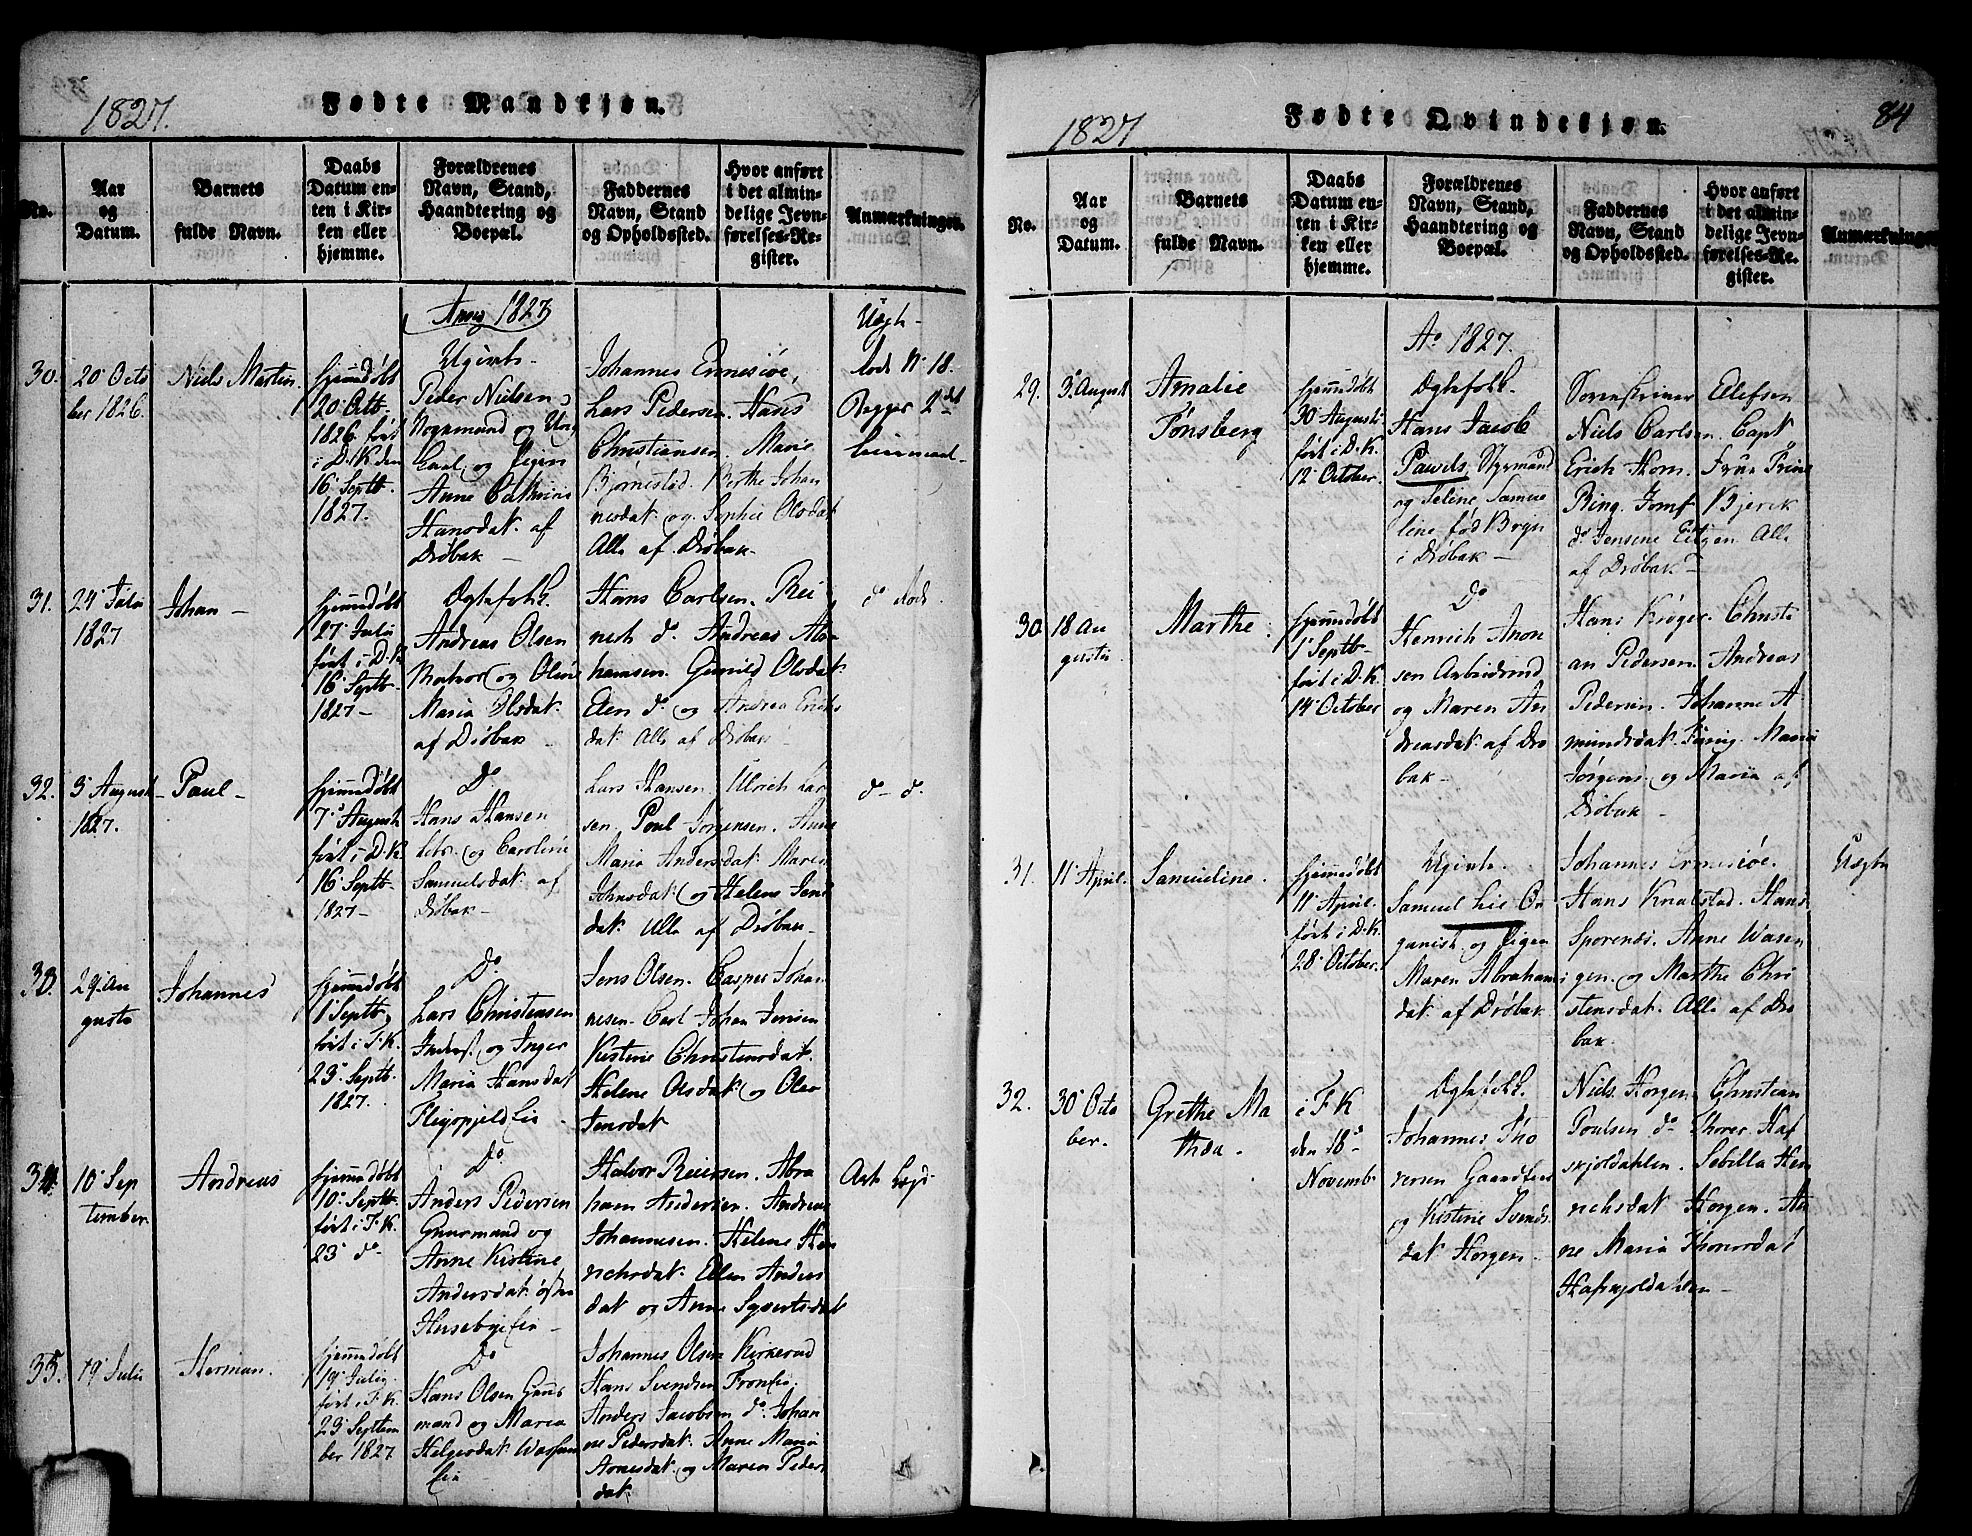 1827.
Fødte Mandkjøn.
No.
Aar
og
Datum.
Barnets
fulde Navn.
Daabs
Datum en-
ten i Kir-
ken eller
hjemme.
Forældrenes
Navn, Stand,
Haandtering og
Boepæl.
Faddernes
Navn, Stand
og Opholdssted.
Hvor anført
i det almin-
delige Jevn-
førelses-Re-
gister.
Anmærkninger.
Anno 1827
30.
20 Octo
ber 1826.
Niels Martin
hjemmedøbt
20 Octb.
1826 ført
i D.K den
16 Septb.
1827.
Ugivte
Peder Nielsen
og
og Pigen
Anne Cathrine
Hansdat. af
Drøbak
Johannes
Lars Pedersen. Hans
Christiansen. Marie
Bjørnestad. Berthe Johan
nesdat og Sophie Olsdat
Alle af Drøbak
No 18.
2det
31.
24 Julii
1827
Johan
hjemmedøbt
27 Julii
ført i D.K
16 Septb.
1827
Ægtefolk.
Andreas Olsen
og Oline
Maria Olsdat.
af Drøbak
Hans Carlsen. Rei
nert do. Andreas Abra
hamsen. Gunild Olsdat
Elen do og Andrea Erichs
dat. Alle af Drøbak
do
32.
3 August
1827.
Paul
hjemmedøbt
7 August
ført i D.K.
16 Septb.
1827
Do
Hans Hansen
og Caroline
Samuelsdat. af
Drøbak
Lars Hansen. Ulrich Lar
sen. Poul Jørgensen. Anne
Maria Andersdat. Maren
Johnsdat og Helene Jens
dat. Alle af Drøbak
do do.
33.
29 Au
gusti
Johannes
hjemmedøbt
1 Septb.
ført i F.K.
23 Septb.
1827.
Do
Lars Christensen
Inderst og Inger
Maria Hansdat
Jens Olsen. Casper Johan
nesen. Carl Johan Jensen
Kistine Christensdat.
Helene Olsdat og Olea
Jensdat
34.
10 Sep
tember
Andreas
hjemmedøbt
10 Septb.
ført i F.K.
23 do
Do
Anders Pedersen
Gaarmand og
Anne Kistine
Andersdat
Halvor Reiersen. Abra
ham Andersen. Andreas
Johannesen. Helene Hen
richsdat. Ellen Anders
dat og Anne Syvertsdat
35.
19 Julii
Herman.
hjemmedøbt
19 Julii
ført i F.K.
23 Septem
ber 1827
Do
Hans Olsen
mand og Maria
Helgesdat
Johannes Olsen Kirkerud
Hans Svendsen
Anders Jacobsen do. Johan
ne Pedersdat. Anne Maria
Arnesdat. og Maren Peders
dat.
1827
Fødte Qvindekjøn.
84
No.
Aar
og
Datum.
Barnets
fulde Navn.
Daabs
Datum en-
ten i Kir-
ken eller
hjemme.
Forældrenes
Navn, Stand,
Haandtering og
Boepæl.
Faddernes
Navn, Stand
og Opholdssted.
Hvor anført
i det almin-
delige Jevn-
førelses-Re-
gister.
Anmærkninger
Ao 1827.
29.
3 August
Amalie
Tønsberg
hjemmedøbt
30 Augusti
ført i D.K.
12 October.
Ægtefolk.
Hans Jacob
Pawels, Styrmand
og Seline Samue
line fød Bryn
i Drøbak
Sorenskriver Ellefsen
Niels Carlsen. Capt
Erich Horn. Frue Trine
Ring. Jomf Bjerck
do Jensine Alle
af Drøbak
30
18 Au
gusti
Marthe
hjemmedøbt
1 Septb
ført i D.K.
14 October
Do
Henrich Aron
sen Arbeidsmd
og Maren An
dreasdat. af Drø
bak
Hans Krøger. Christi
an Pedersen. Andreas
Pedersen. Johanne A
mundsdat. Maria
Jørgens og Maria af
Drøbak
31.
11 April.
Samueline.
hjemmedøbt
11 April.
ført i D.K.
28 October.
Ugivte
Samuel Lie Or
ganist og Pigen
Maren Abrahams
dat. af Drøbak
Johannes
Hans Knatstad. Hans
Sporenes. Anne Wasen
gen. og Marthe Chri
stensdat. Alle af Drø
bak.
Uægte
32.
30 Octo
ber.
Grethe Ma
thea.
i F.K
den 18
Novemb
Ægtefolk.
Johannes Tho
resen
og Kistine Svends
dat Horgen.
Niels Horgen. Christian
Poulsen do Thorer Haf
skjoldahlen. Sebilla Hen
richsdat Horgen. An
ne Maria Thorersdat
Hafskjoldahlen